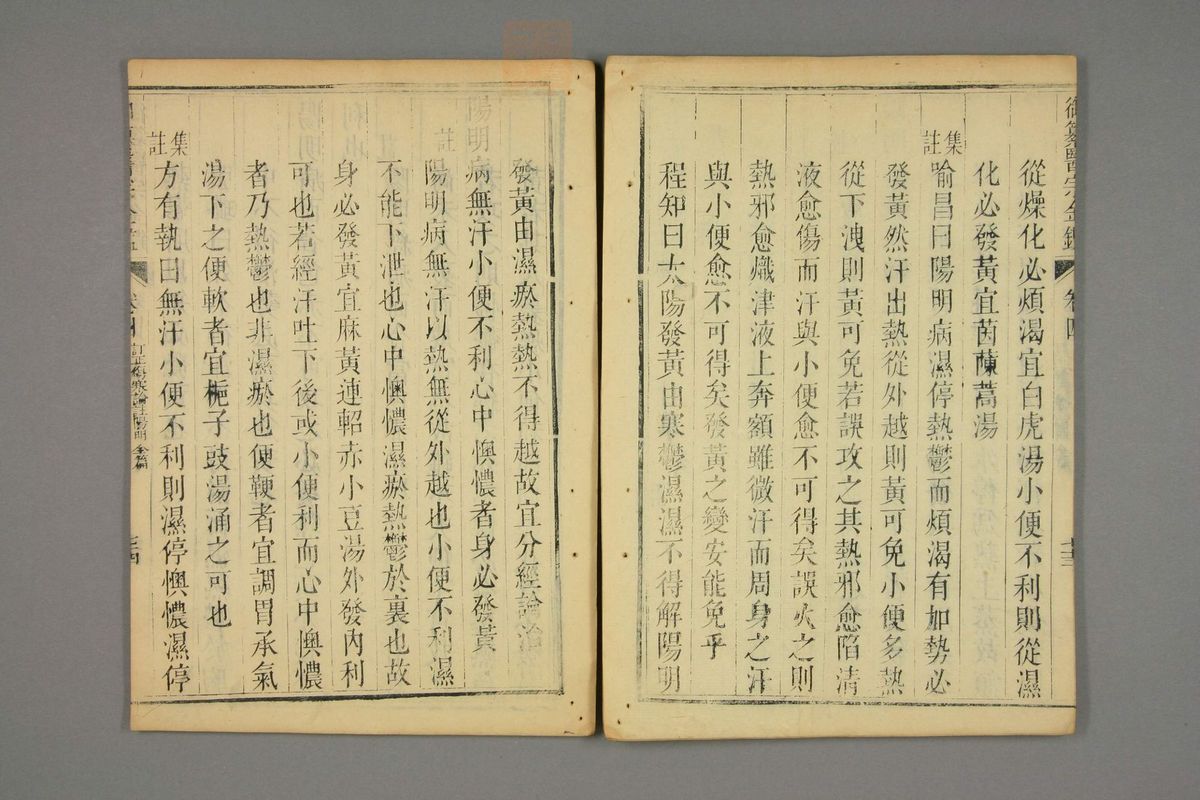 御纂醫宗金鑑 卷四
從燥化必煩渴宜白虎湯小便不利則從濕
化必發黃宜茵蔯蒿湯
集註
喻昌曰陽明病濕停熱鬱而煩渴有加勢必
發黃然汗出熱從外越則黃可免小便多熱
從下洩則黃可免若誤攻之其熱邪愈陷清
液愈傷而汗與小便愈不可得矣誤火之則
熱邪愈熾津液上奔額雖微汗而周身之汗
與小便愈不可得矣發黃之變安能免乎
程知曰太陽發黃由寒鬱濕濕不得解陽明
發黃由濕瘀熱熱不得越故宜分經論治
陽明病無汗小便不利心中懊憹者身必發黃
註
陽明病無汗以熱無從外越也小便不利濕
不能下泄也心中懊憹濕瘀熱鬱於裏也故
身必發黃宜麻黃連軺赤小豆湯外發內利
可也若經汗吐下後或小便利而心中懊憹
者乃熱鬱也非濕瘀也便鞕者宜調胃承氣
湯下之便軟者宜梔子豉湯涌之可也
集註
方有執曰無汗小便不利則濕停懊憹濕停
卷四 訂正傷寒論註陽明全篇